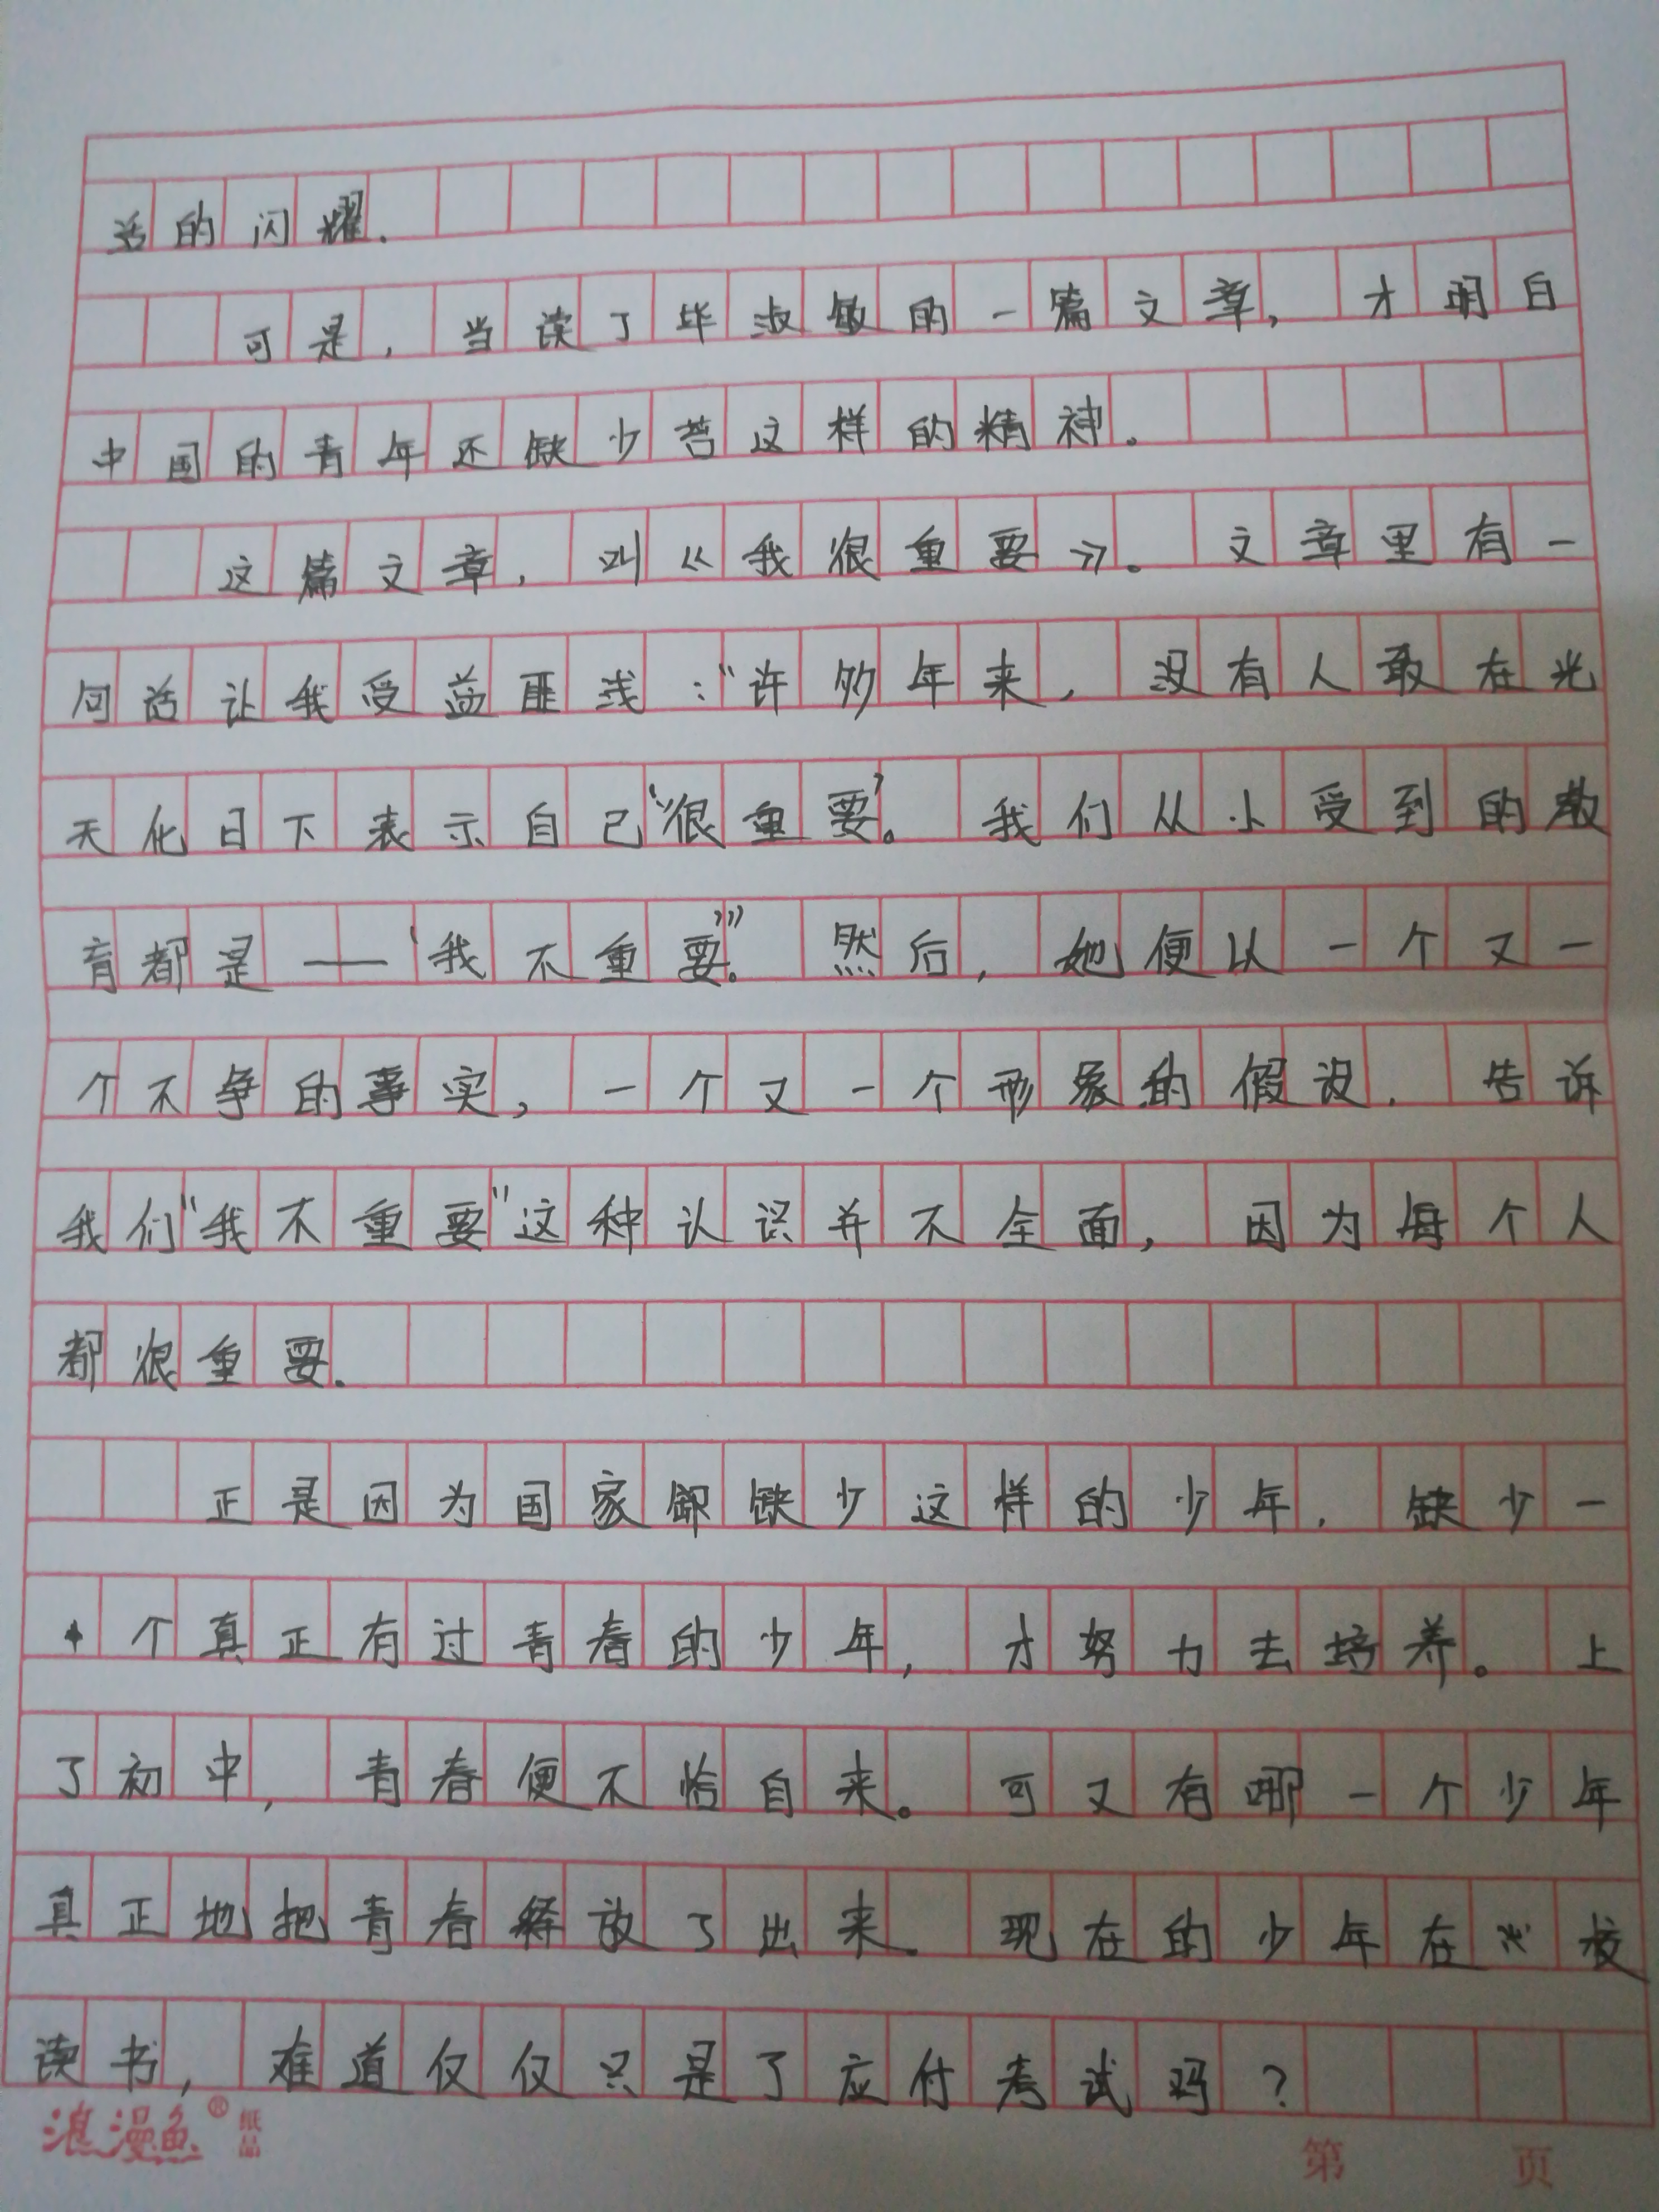 活的闪耀.
可是，当读了毕淑敏的一篇文章，才明白
中国的青年还缺少苦这样的精神。
这篇文章，叫《我很重要》。文章里有一
句话让我受益匪浅："许多年来，没有人敢在光
天化日下表示自己'很重要'。我们从小受到的教
育都是——'我不重要。'"然后，她便以一个又一
个不争的事实，一个又一个形象的假设，告诉
我们"我不重要"这种认识并不全面，因为每个人
都很重要。
正是因为国家却缺少这样的少年，缺少一
个真正有过青春的少年，才努力去培养。上
了初中，青春便不恰自来。可又有哪一个少年
真正地把青春释放了出来。现在的少年在 校
读书，难道仅仅只是了应付考试吗？
浪漫鱼®纸品
第 页